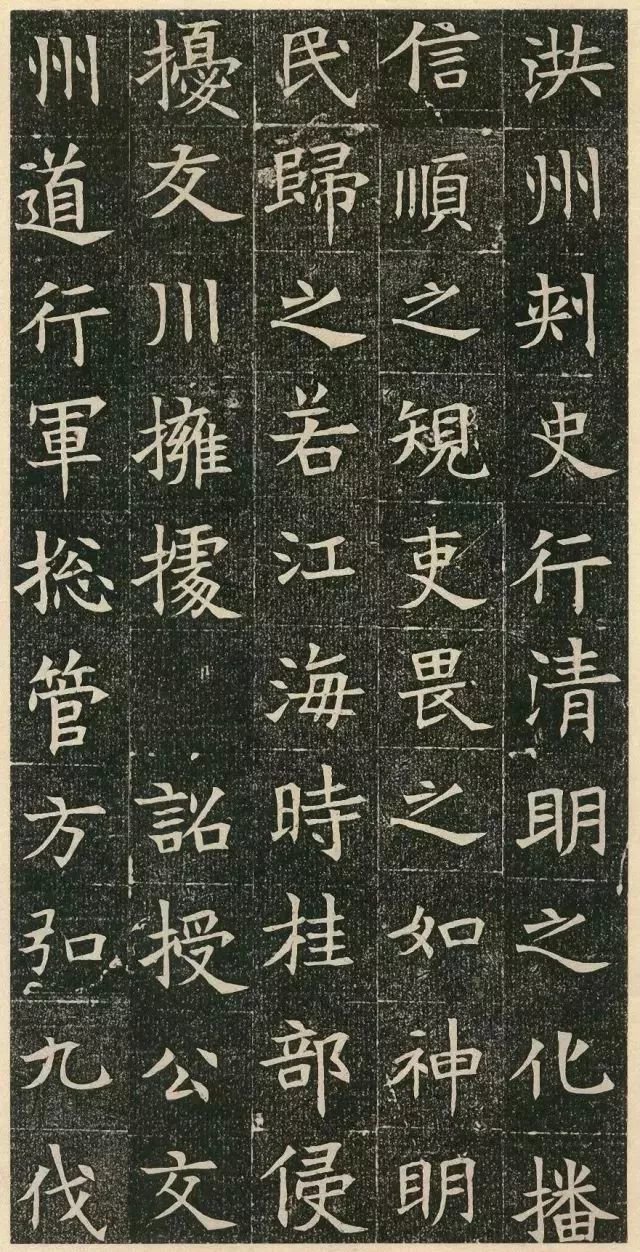 洪州刾史行清明之化播
信順之䂓吏畏之如神明
民歸之若江海時桂部侵
擾友川擁據 詔授公交
州道行軍捴管方弘九伐